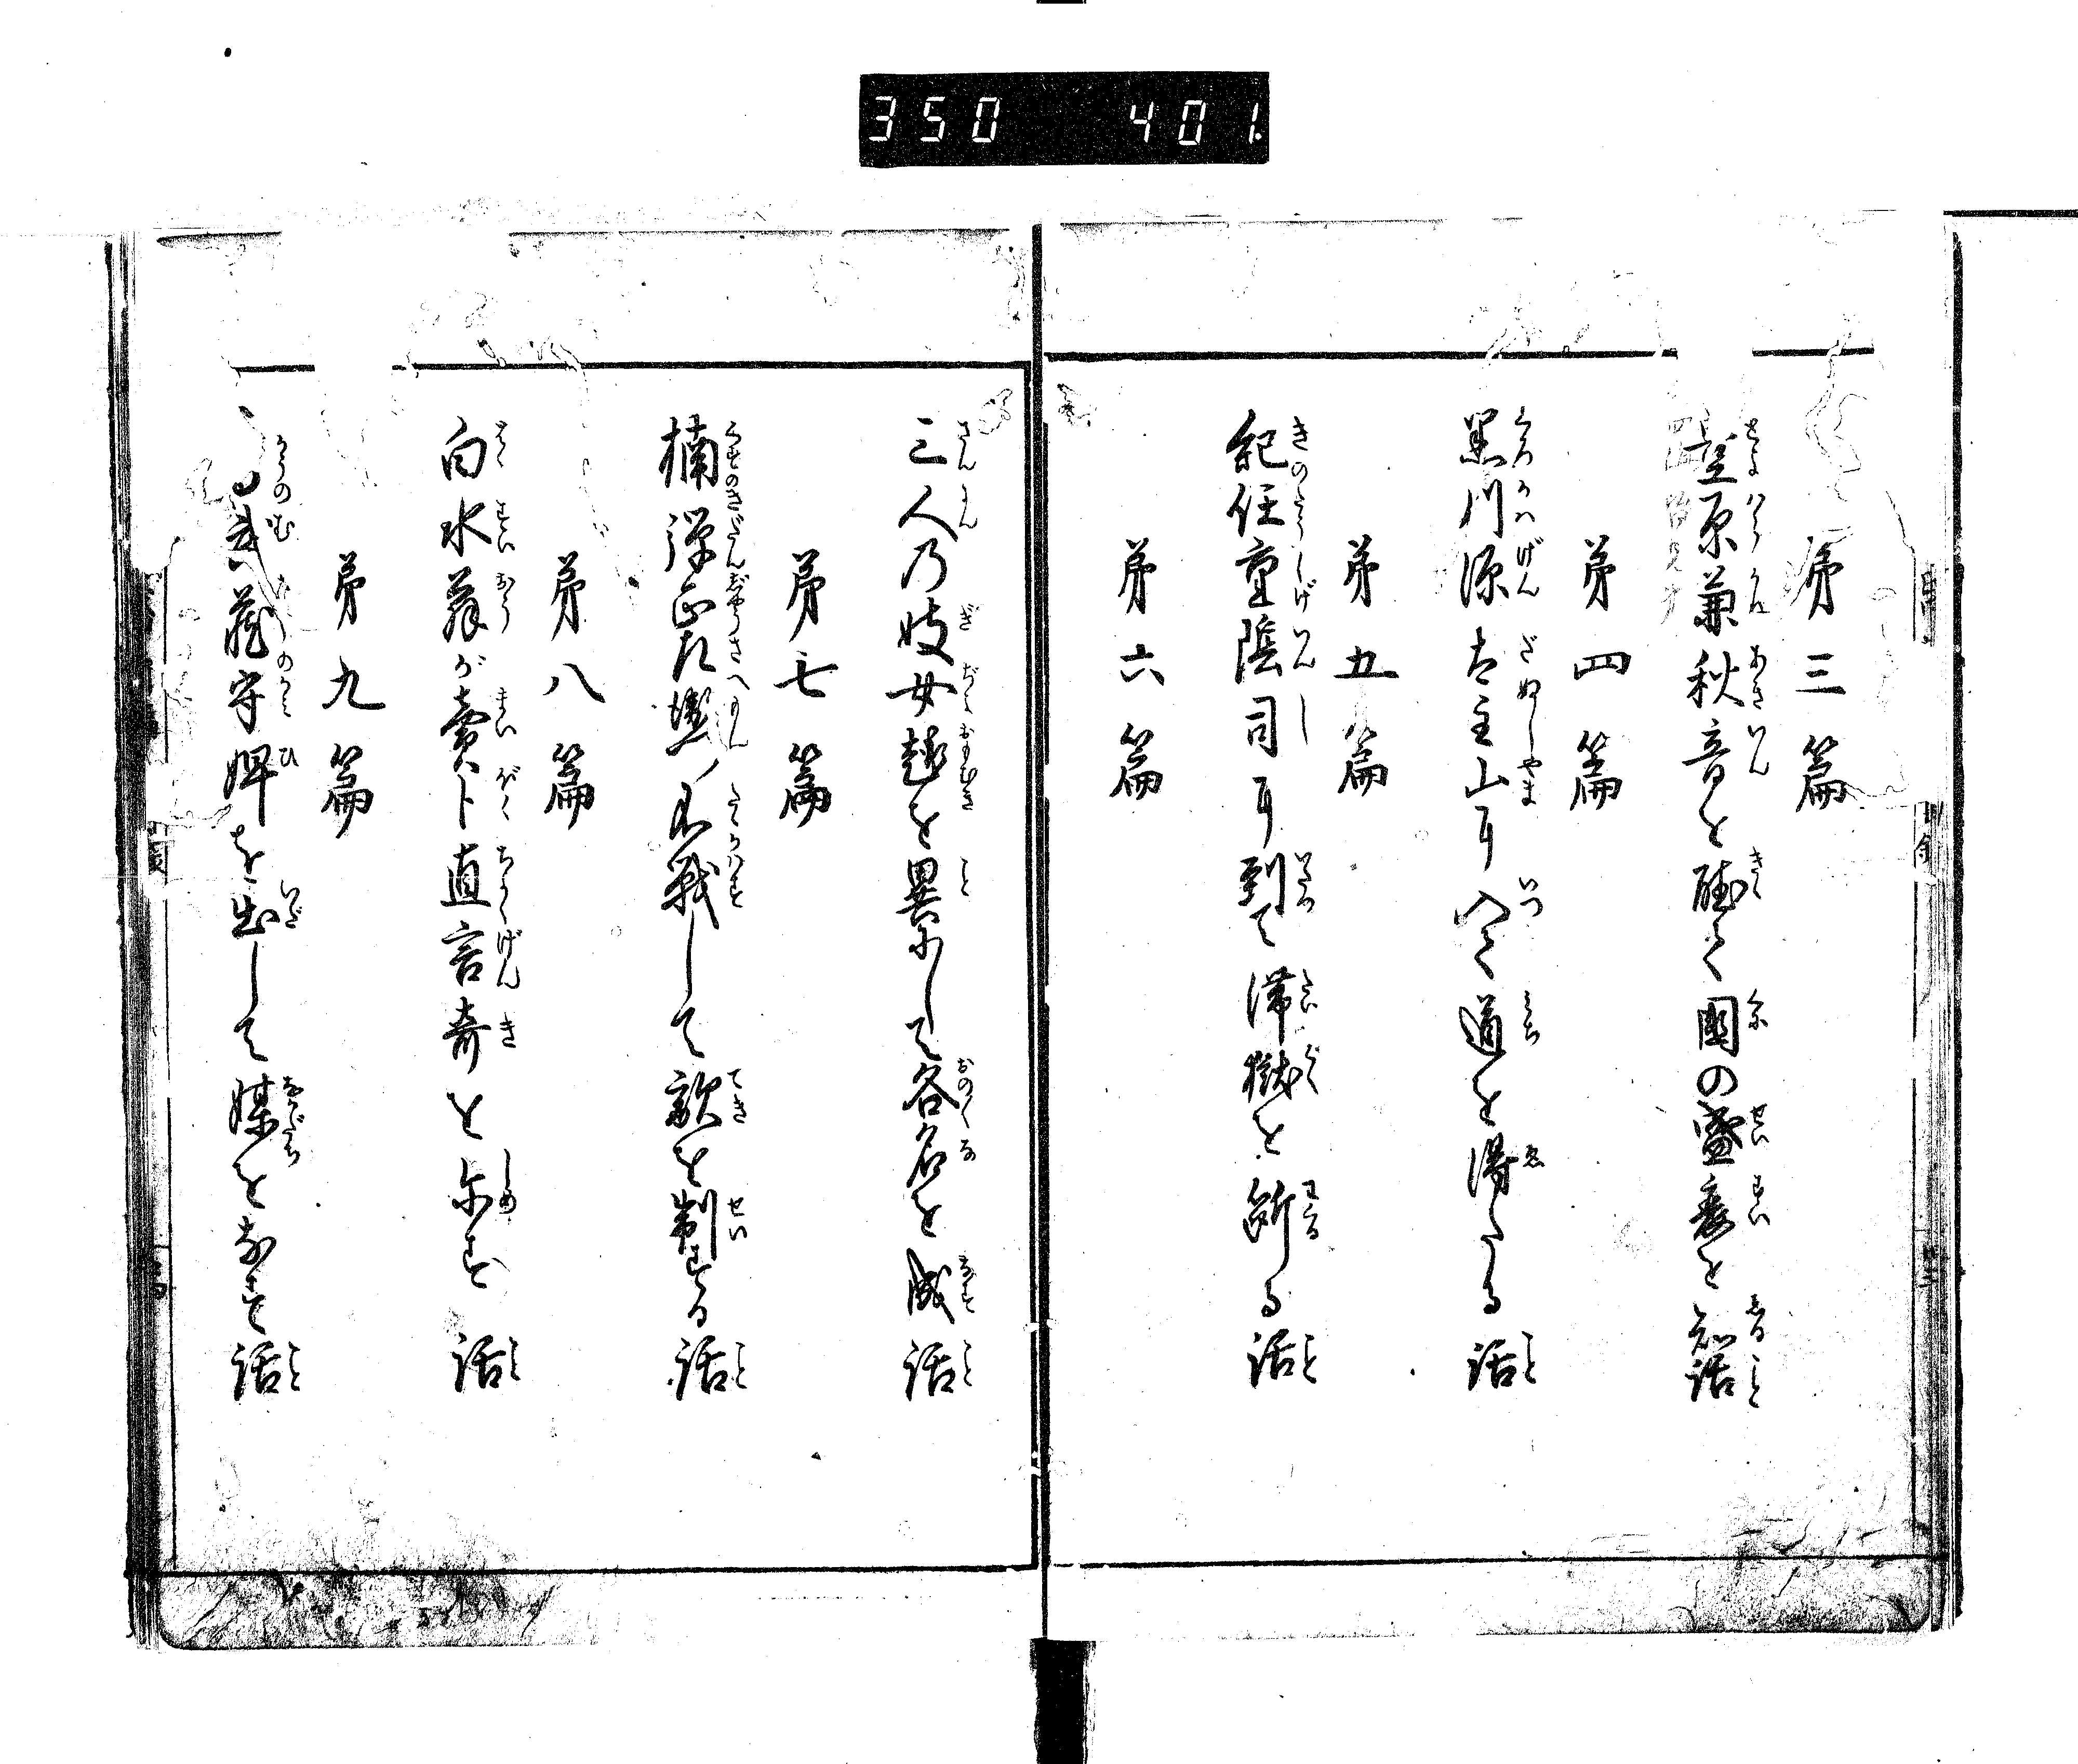 350 401.
第三篇
豊原兼秋音を聴て國の盛衰を知話
第四篇
黒川源太主山に入て道を得たる話
第五篇
紀任重陰司に到て滞獄を断る話
第六篇
三人乃妓女趣を異にして各名を成話
第七篇
楠弾正左衛門不戦して敵を制する話
第八篇
白水翁が賣卜直言奇を示す話
第九篇
高武蔵守婢を出して媒をなす話